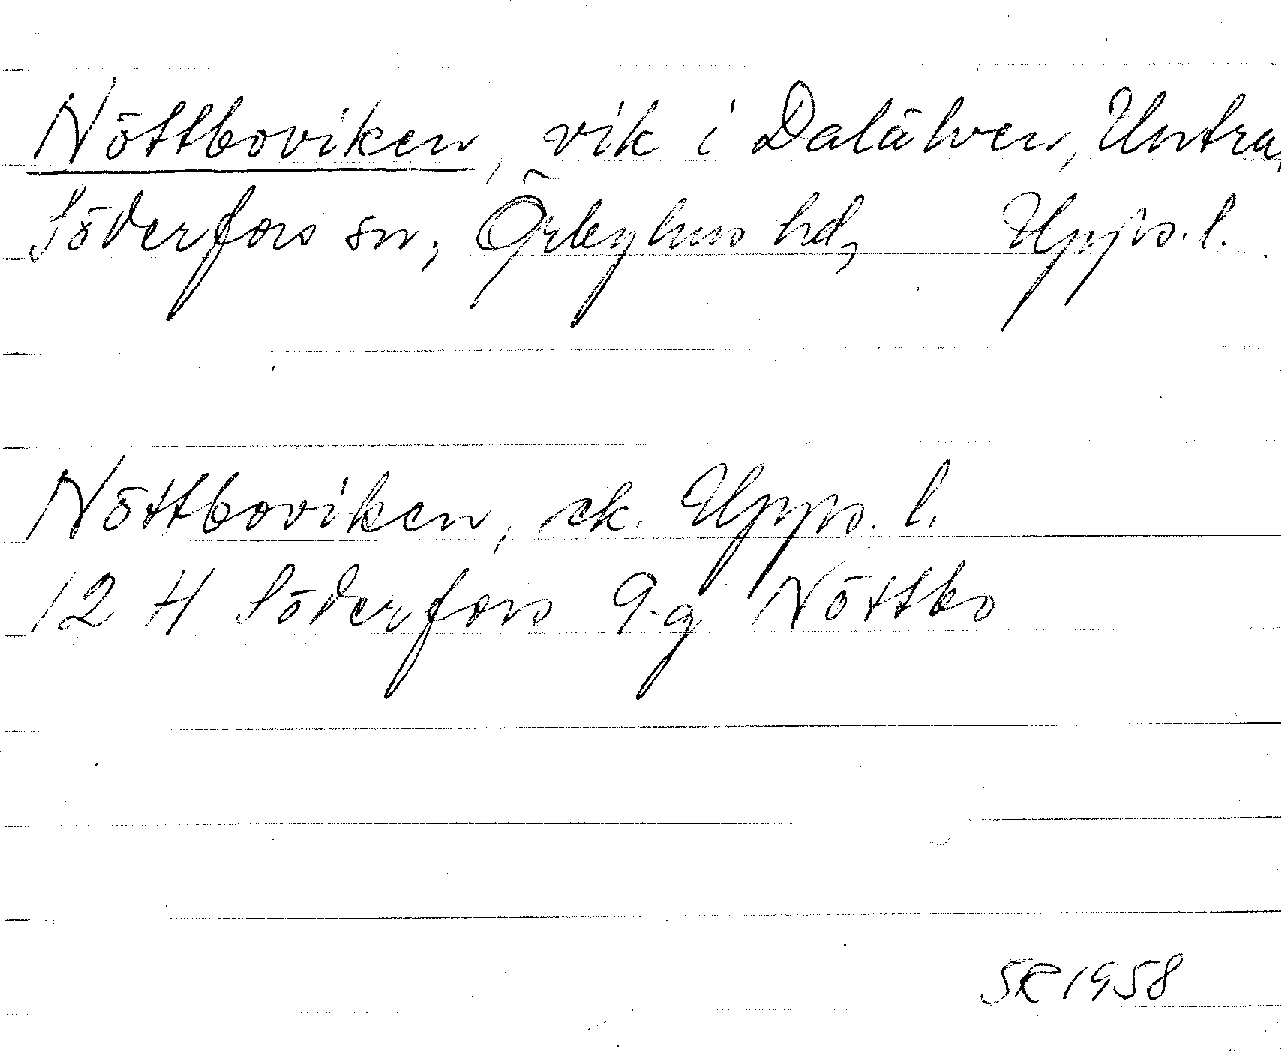 Nöttboviken, vik i Dalälven, Untra,
Söderfors sn, Örbyhus hd, Upps. l.
Nöttboviken, ek. Upps. l.
12 H Söderfors 9-g Nöttbo
SR 1958